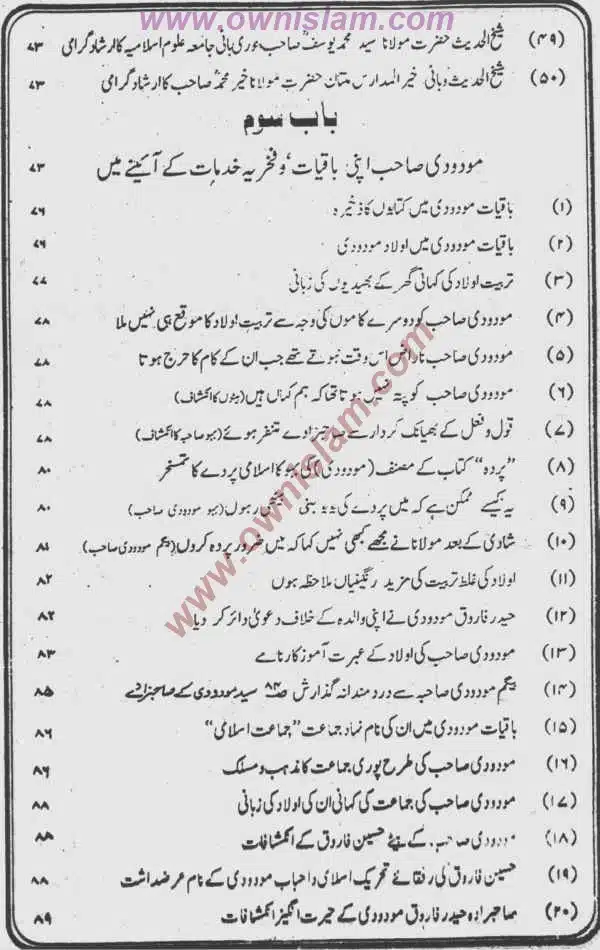 www.ownislam.com
(۴۹) شیخ الحدیث حضرت مولانا سید محمد یوسف صاحب بنوری بانی جامعہ علوم اسلامیہ کا ارشاد گرامی ۷۳
(۵۰) شیخ الحدیث و بانی خیر المدارس ملتان حضرت مولانا خیر محمد صاحب کا ارشاد گرامی ۷۳
باب سوم
مودودی صاحب اپنی باقیات' و فخریہ خدمات کے آئینے میں ۷۳
(۱) باقیات مودودی میں کتابوں کا ذخیرہ ۷۶
(۲) باقیات مودودی میں اولاد مودودی ۷۶
(۳) تربیت اولاد کی کہانی گھر کے بھیدیوں کی زبانی ۷۷
(۴) مودودی صاحب کو دوسرے کاموں کی وجہ سے تربیت اولاد کا موقع ہی نہیں ملا ۷۸
(۵) مودودی صاحب ناراض اس وقت ہوتے تھے جب ان کے کام کا حرج ہوتا ۷۸
(۶) مودودی صاحب کو پتہ نہیں ہوتا تھا کہ ہم کہاں ہیں (بیٹوں کا انکشاف) ۷۸
(۷) قول و فعل کے بھیانک کردار سے صاحبزادے متنفر ہوئے (بہو صاحبہ کا انکشاف) ۷۸
(۸) "پردہ" کتاب کے مصنف (مودودی) کی بہو کا اسلامی پردے کا تمسخر ۸۰
(۹) یہ کیسے ممکن ہے کہ میں پردے کی بیٹھی رہوں (بہو مودودی صاحب) ۸۰
(۱۰) شادی کے بعد مولانا نے مجھے کبھی نہیں کہا کہ میں ضرور پردہ کروں (بیگم مودودی صاحب) ۸۱
(۱۱) اولاد کی غلط تربیت کی مزید رنگینیاں ملاحظہ ہوں ۸۲
(۱۲) حیدر فاروق مودودی نے اپنی والدہ کے خلاف دعویٰ دائر کر دیا ۸۲
(۱۳) مودودی صاحب کی اولاد کے عبرت آموز کارنامے ۸۳
(۱۴) بیگم مودودی صاحبہ سے درد مندانہ گذارش ص۸۴ سید مودودی کے صاحبزادے ۸۵
(۱۵) باقیات مودودی میں ان کی نام نہاد جماعت "جماعت اسلامی" ۸۶
(۱۶) مودودی صاحب کی طرح پوری جماعت کا مذہب و مسلک ۸۶
(۱۷) مودودی صاحب کی جماعت کی کہانی ان کی اولاد کی زبانی ۸۸
(۱۸) مودودی صاحب کے بیٹے حسین فاروق کے انکشافات ۸۸
(۱۹) حسین فاروق کی رفقائے تحریک اسلامی و احباب مودودی کے نام عرضداشت ۸۸
(۲۰) صاحبزادہ حیدر فاروق مودودی کے حیرت انگیز انکشافات ۸۹
www.ownislam.com